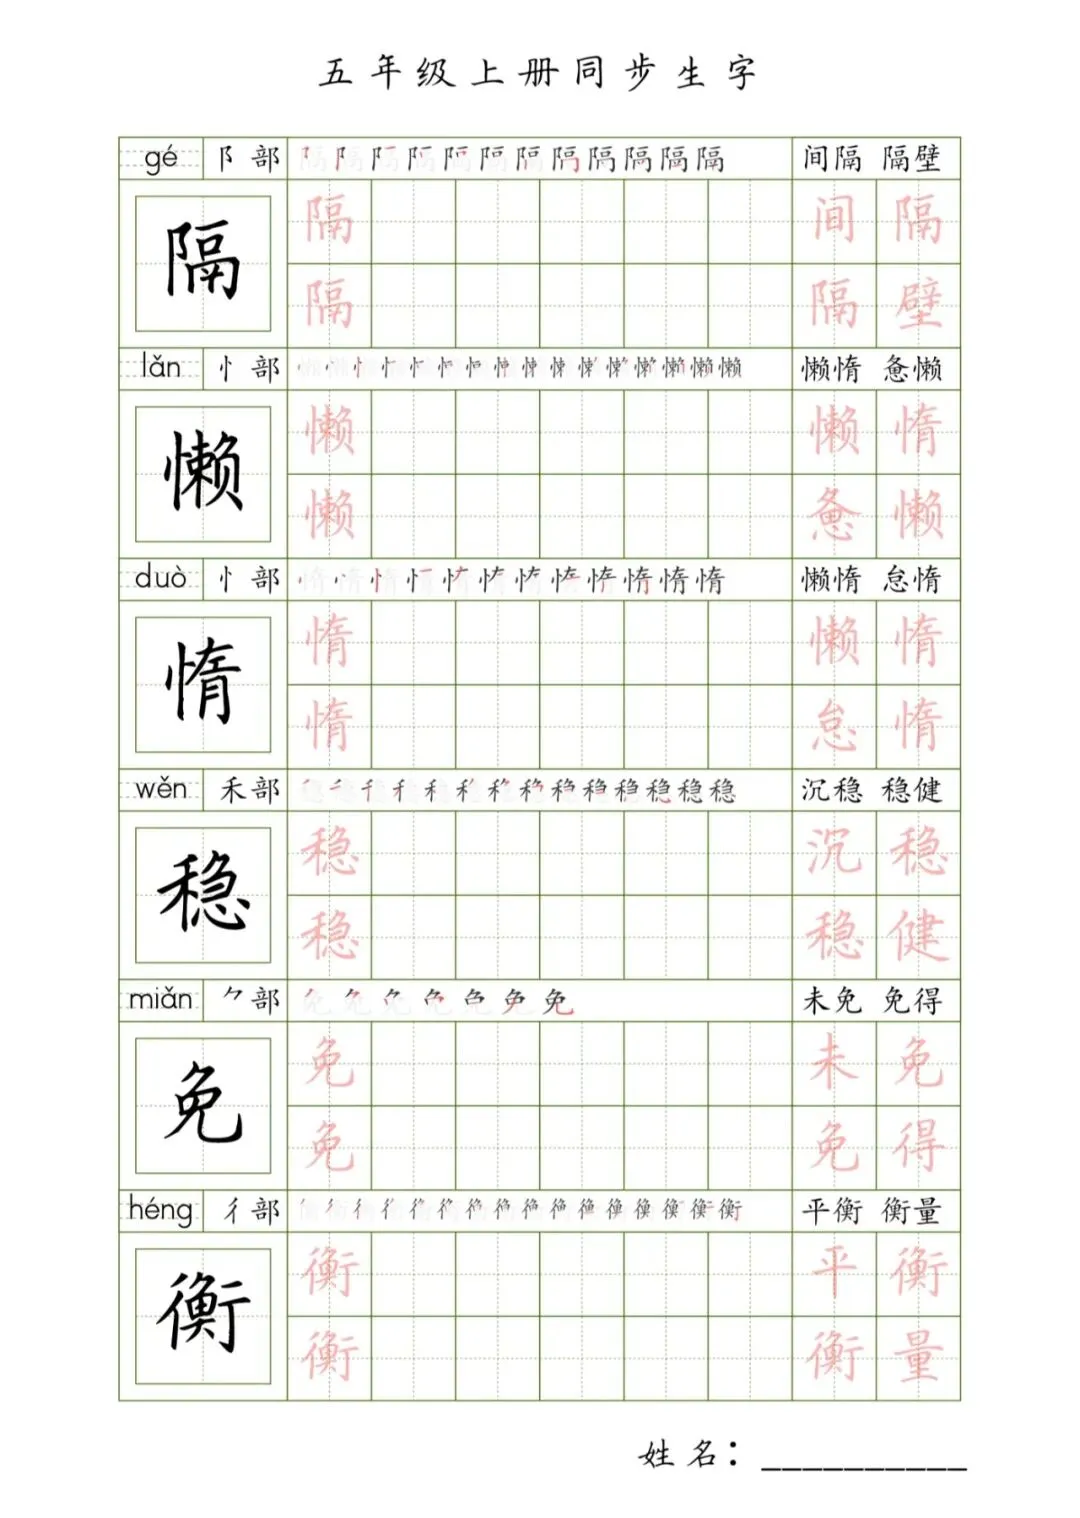 五年级上册同步生字
gé 阝部 隔隔 间隔 隔壁
隔 隔 间 隔
隔 隔 壁
lǎn 忄部 懒懒 懒惰 惫懒
懒 懒 懒 惰
懒 惫 懒
duò 忄部 惰惰 懒惰 怠惰
惰 惰 懒 惰
惰 怠 惰
wěn 禾部 稳稳 沉稳 稳健
稳 稳 沉 稳
稳 稳 健
miǎn ⺈部 免 未免 免得
免 免 未 免
免 免 得
héng 彳部 衡 平衡 衡量
衡 衡 平 衡
衡 衡 量
姓名：__________